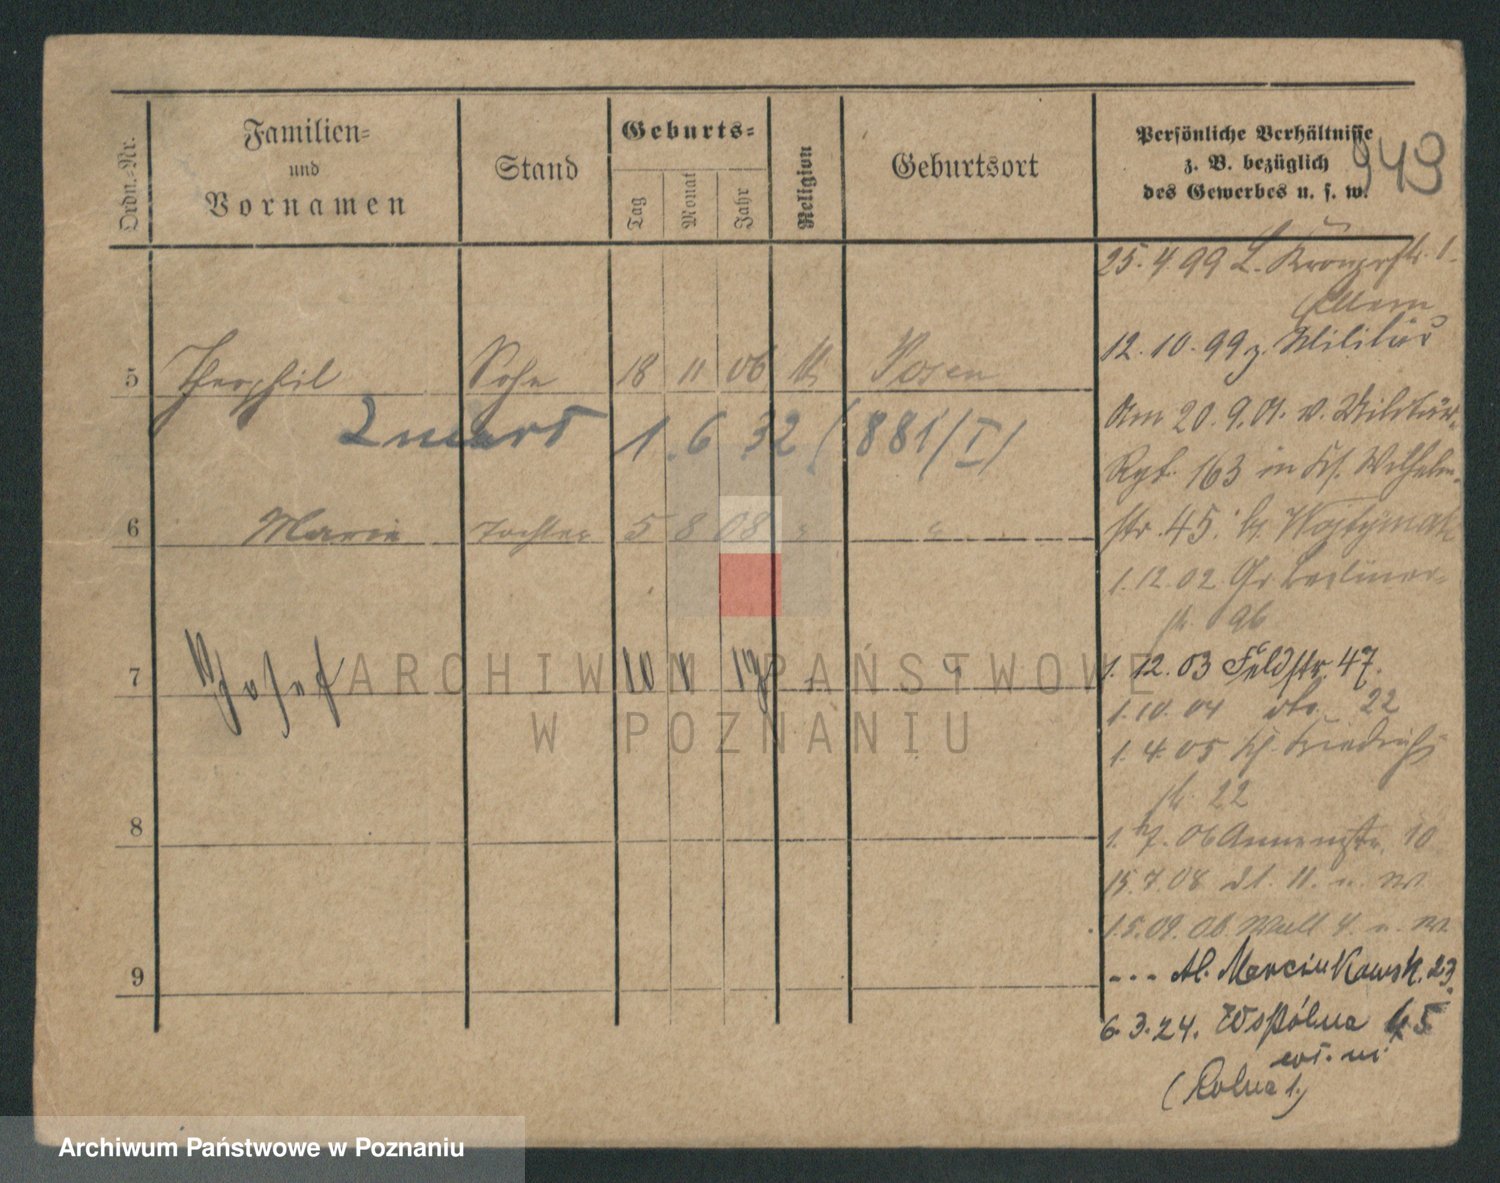 Ordn.-Nr.
Familien-
und
Vornamen
Stand
Geburts-
Tag
Monat
Jahr
Religion
Geburtsort
Persönliche Verhältnisse
z. B. bezüglich
des Gewerbes u. s. w.
943
5 Theophil Sohn 18 11 06 Posen
1. 6 32 (881/I)
6 Marie Tochter 5 8 08 " "
7 Josef 10 1
8
9
25. 4. 99
12. 10. 99 z. Militär
Am 20. 9. 01. v. Militär-
Rgt. 163 in Wilhelm-
str. 45.
1. 12. 02 Gr Berliner-
str. 96
1. 12. 03 Feldstr. 47.
1. 10. 04 do. 22
1. 4. 05 Friedrich
str. 22
1. 7. 06 Annenstr. 10
15. 7. 08 11.
1. 5. 09. Ob. Wall 4.
--- Al. Marcinkowsk. 23.
6. 3. 24. Wspólna 45
(Rolna 1.)
ARCHIWUM PAŃSTWOWE
W POZNANIU
Archiwum Państwowe w Poznaniu